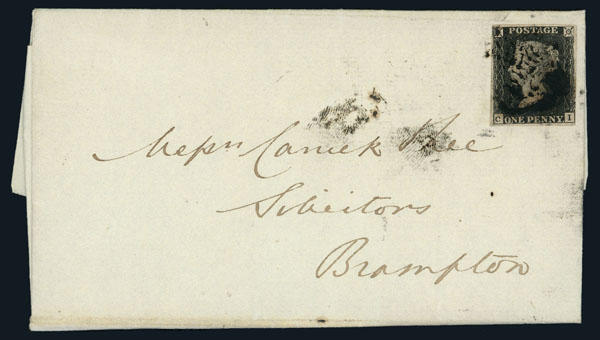 POSTAGE
C ONE PENNY I
Messrs Carrick & Lee
Solicitors
Brampton